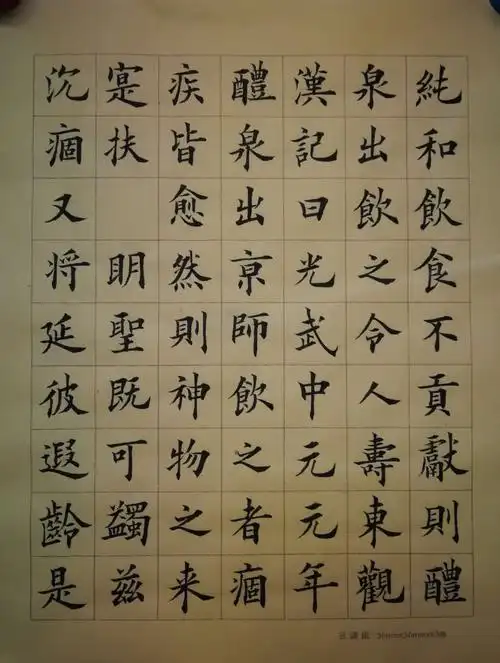 純和飲食不貢獻則醴
泉出飲之令人壽東觀
漢記曰光武中元元年
醴泉出京師飲之者痼
疾皆愈然則神物之来
寔扶 明聖既可蠲兹
沉痼又将延彼遐齡是